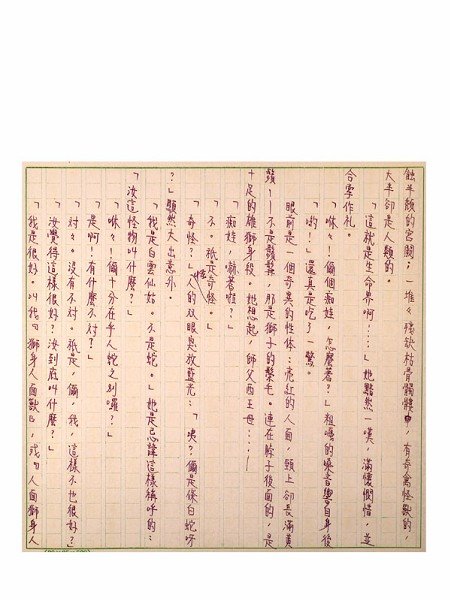 蝕半頹的宮闕；一堆々殘缺枯骨髑髏中，有奇禽怪獸的，
大半卻是人類的。
「這就是生命界啊！……」她黯然一嘆，滿懷憫惜，並
合掌作礼。
「咻々！儞個痴娃，怎麽著？」粗嘎的嗓音響自身後
「喲！」還真是吃了一驚。
眼前是一個奇異的性体：亮紅的人面，頭上卻長滿黃
鬚──不是鬚髮，那是獅子的鬃毛。連在脖子後面的，是
十足的雄獅身段。她想起，師父西王母……
「痴娃，嚇著啦？」
「不。祇是奇怪。」
「奇怪？」人的双眼臭放藍光：「噢？儞是條白蛇呀
？」顯然大出意外。
「我是白雲仙姑。不是蛇。」她是忌諱這樣稱呼的：
「汝這怪物叫什麽？」
「咻々！儞十分在乎人蛇之別囉？」
「是啊！有什麽不对？」
「对々。沒有不对。祇是，儞，我，這樣不也很好？」
「汝覺得這樣很好？汝到底叫什麽？」
「我是很好。叫我『獅身人面獸』，或『人面獅身人